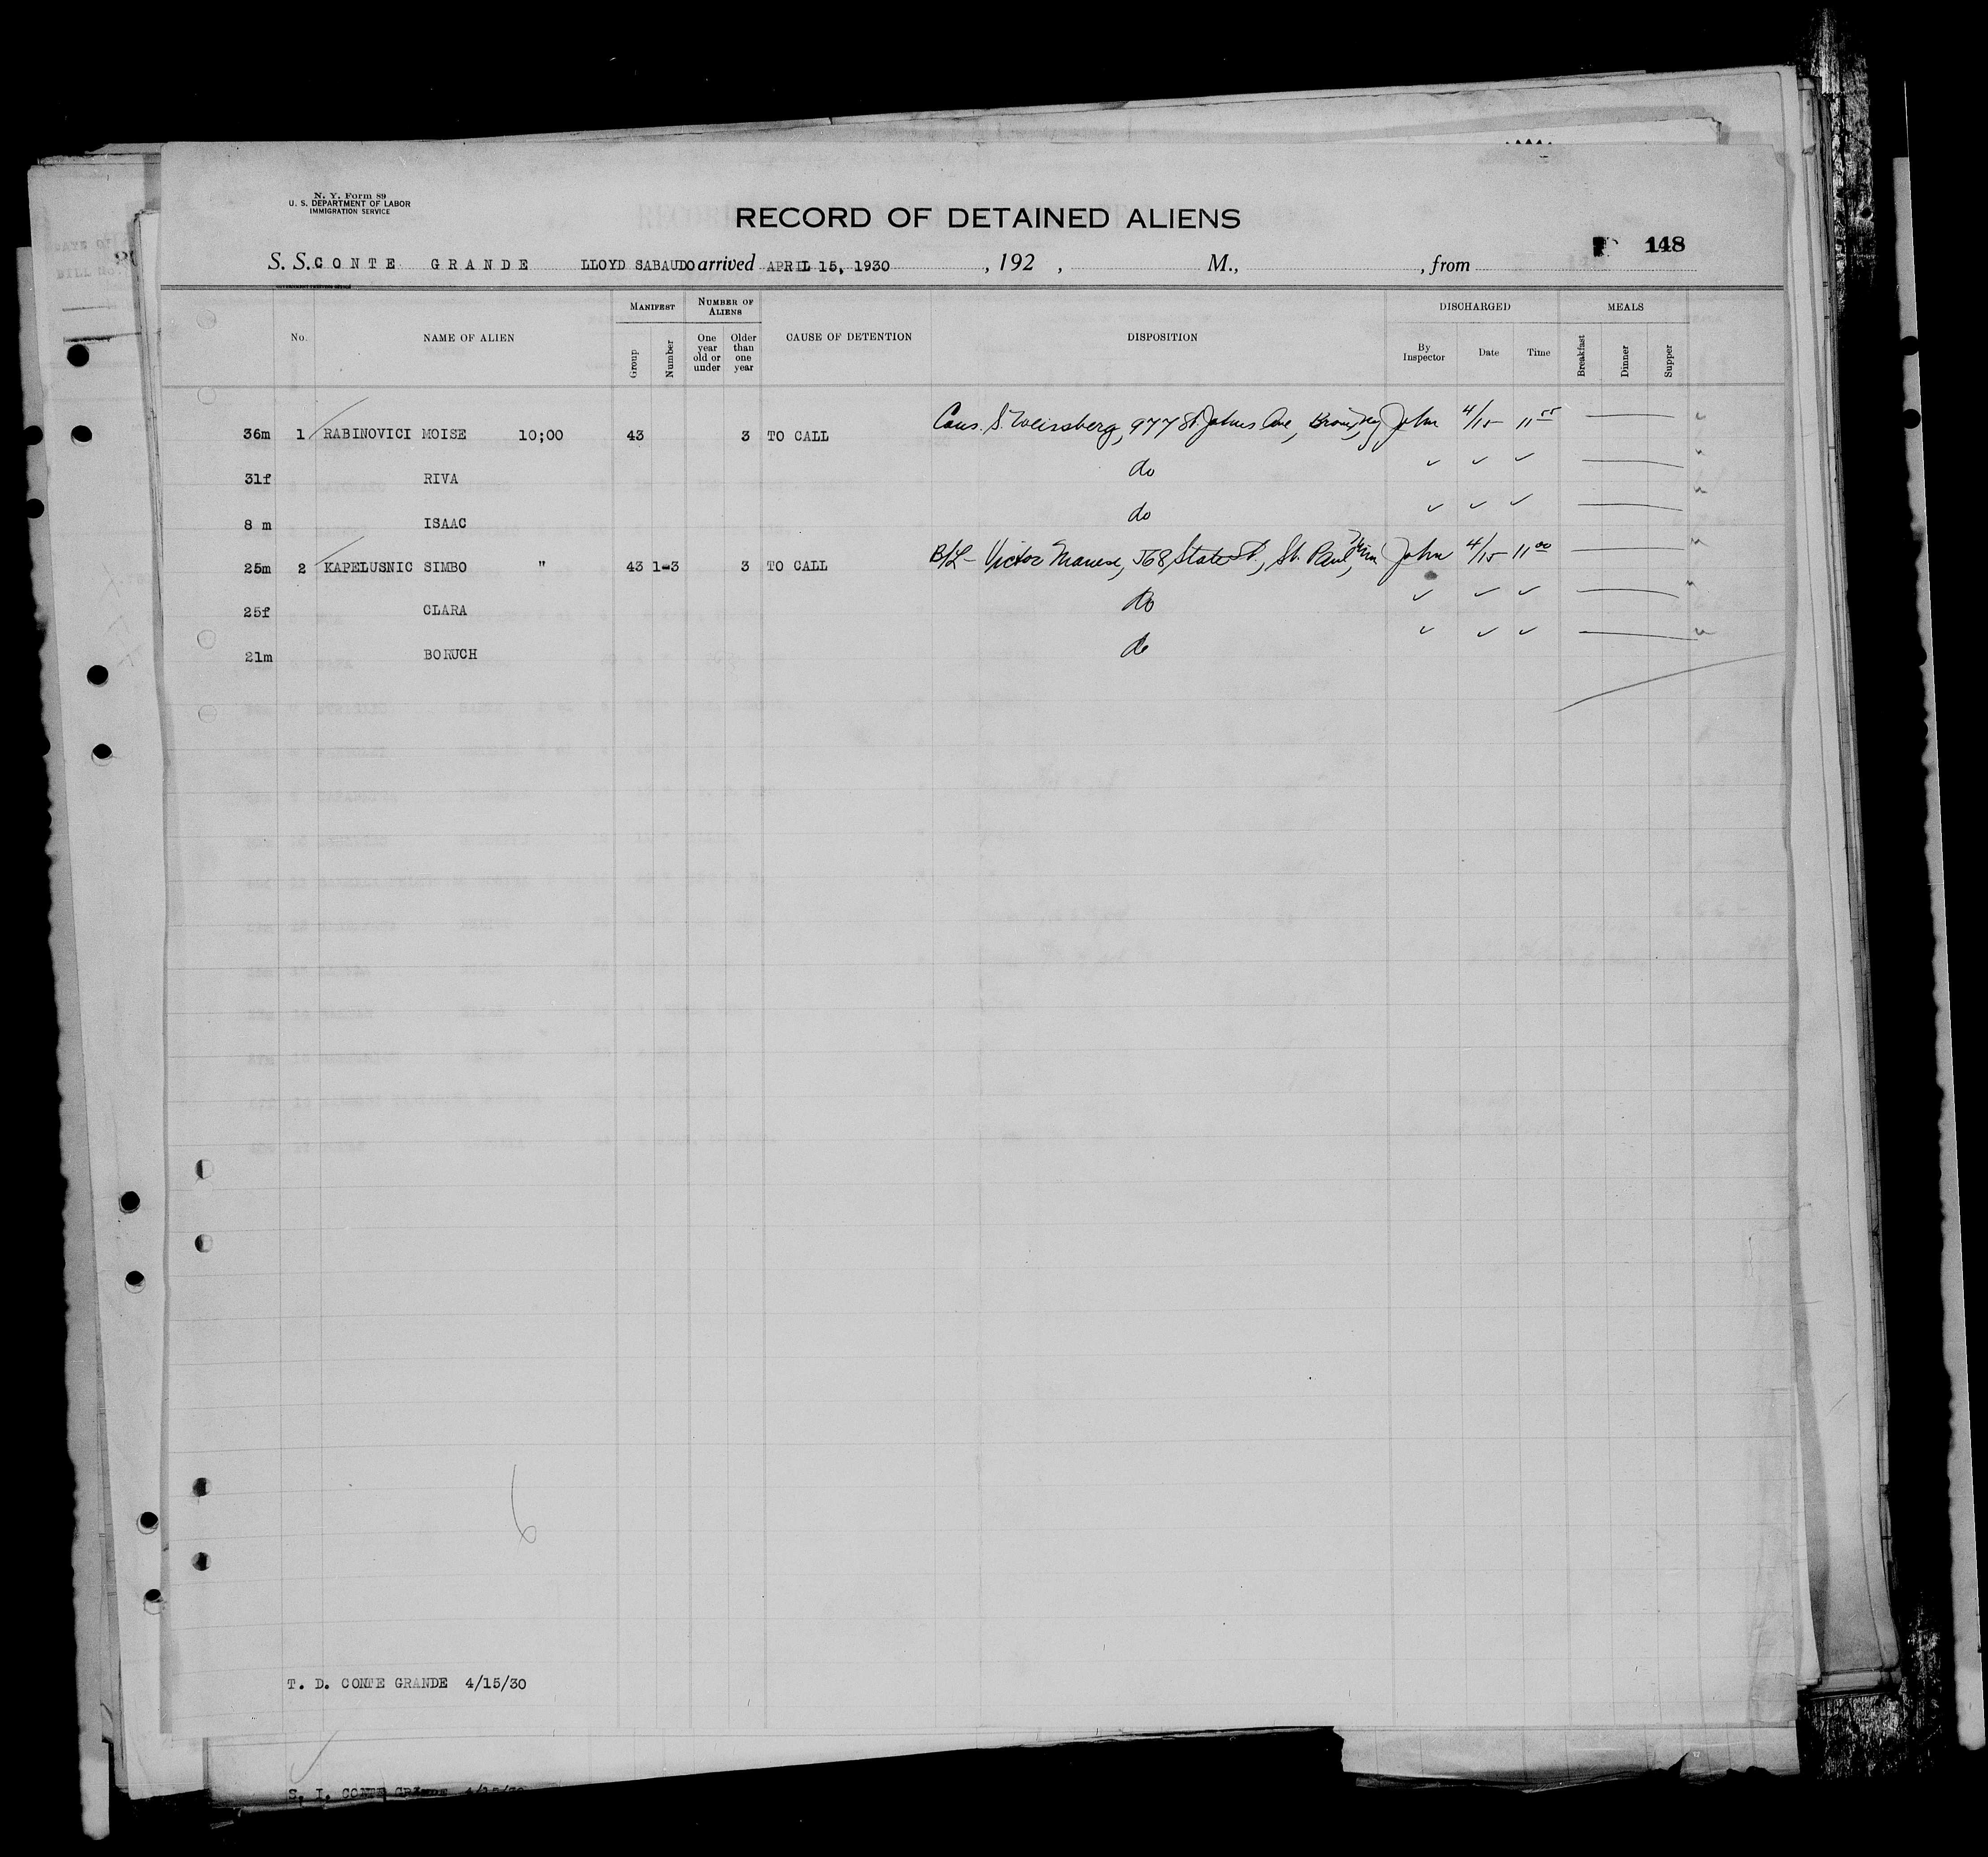 N. Y. Form 89
U. S. DEPARTMENT OF LABOR
IMMIGRATION SERVICE
RECORD OF DETAINED ALIENS
148
S. S. CONTE GRANDE LLOYD SABAUDO arrived APRIL 15, 1930 , 192 , M., , from
No. NAME OF ALIEN MANIFEST Group Number NUMBER OF ALIENS One year old or under Older than one year CAUSE OF DETENTION DISPOSITION DISCHARGED By Inspector Date Time MEALS Breakfast Dinner Supper
36m 1 RABINOVICI MOISE 10;00 43 3 TO CALL Cous. S. Weissberg, 977 St. Johns Ave, John 4/15 11 55
31f RIVA do ✓ ✓ ✓
8 m ISAAC do ✓ ✓ ✓
25m 2 KAPELUSNIC SIMBO " 43 1-3 3 TO CALL B/L - Victor 568 State St., St. Paul, Minn John 4/15 11 00
25f CLARA do ✓ ✓ ✓
21m BORUCH do ✓ ✓ ✓
6
T. D. CONTE GRANDE 4/15/30
S. I. CONTE GRANDE 4/15/30